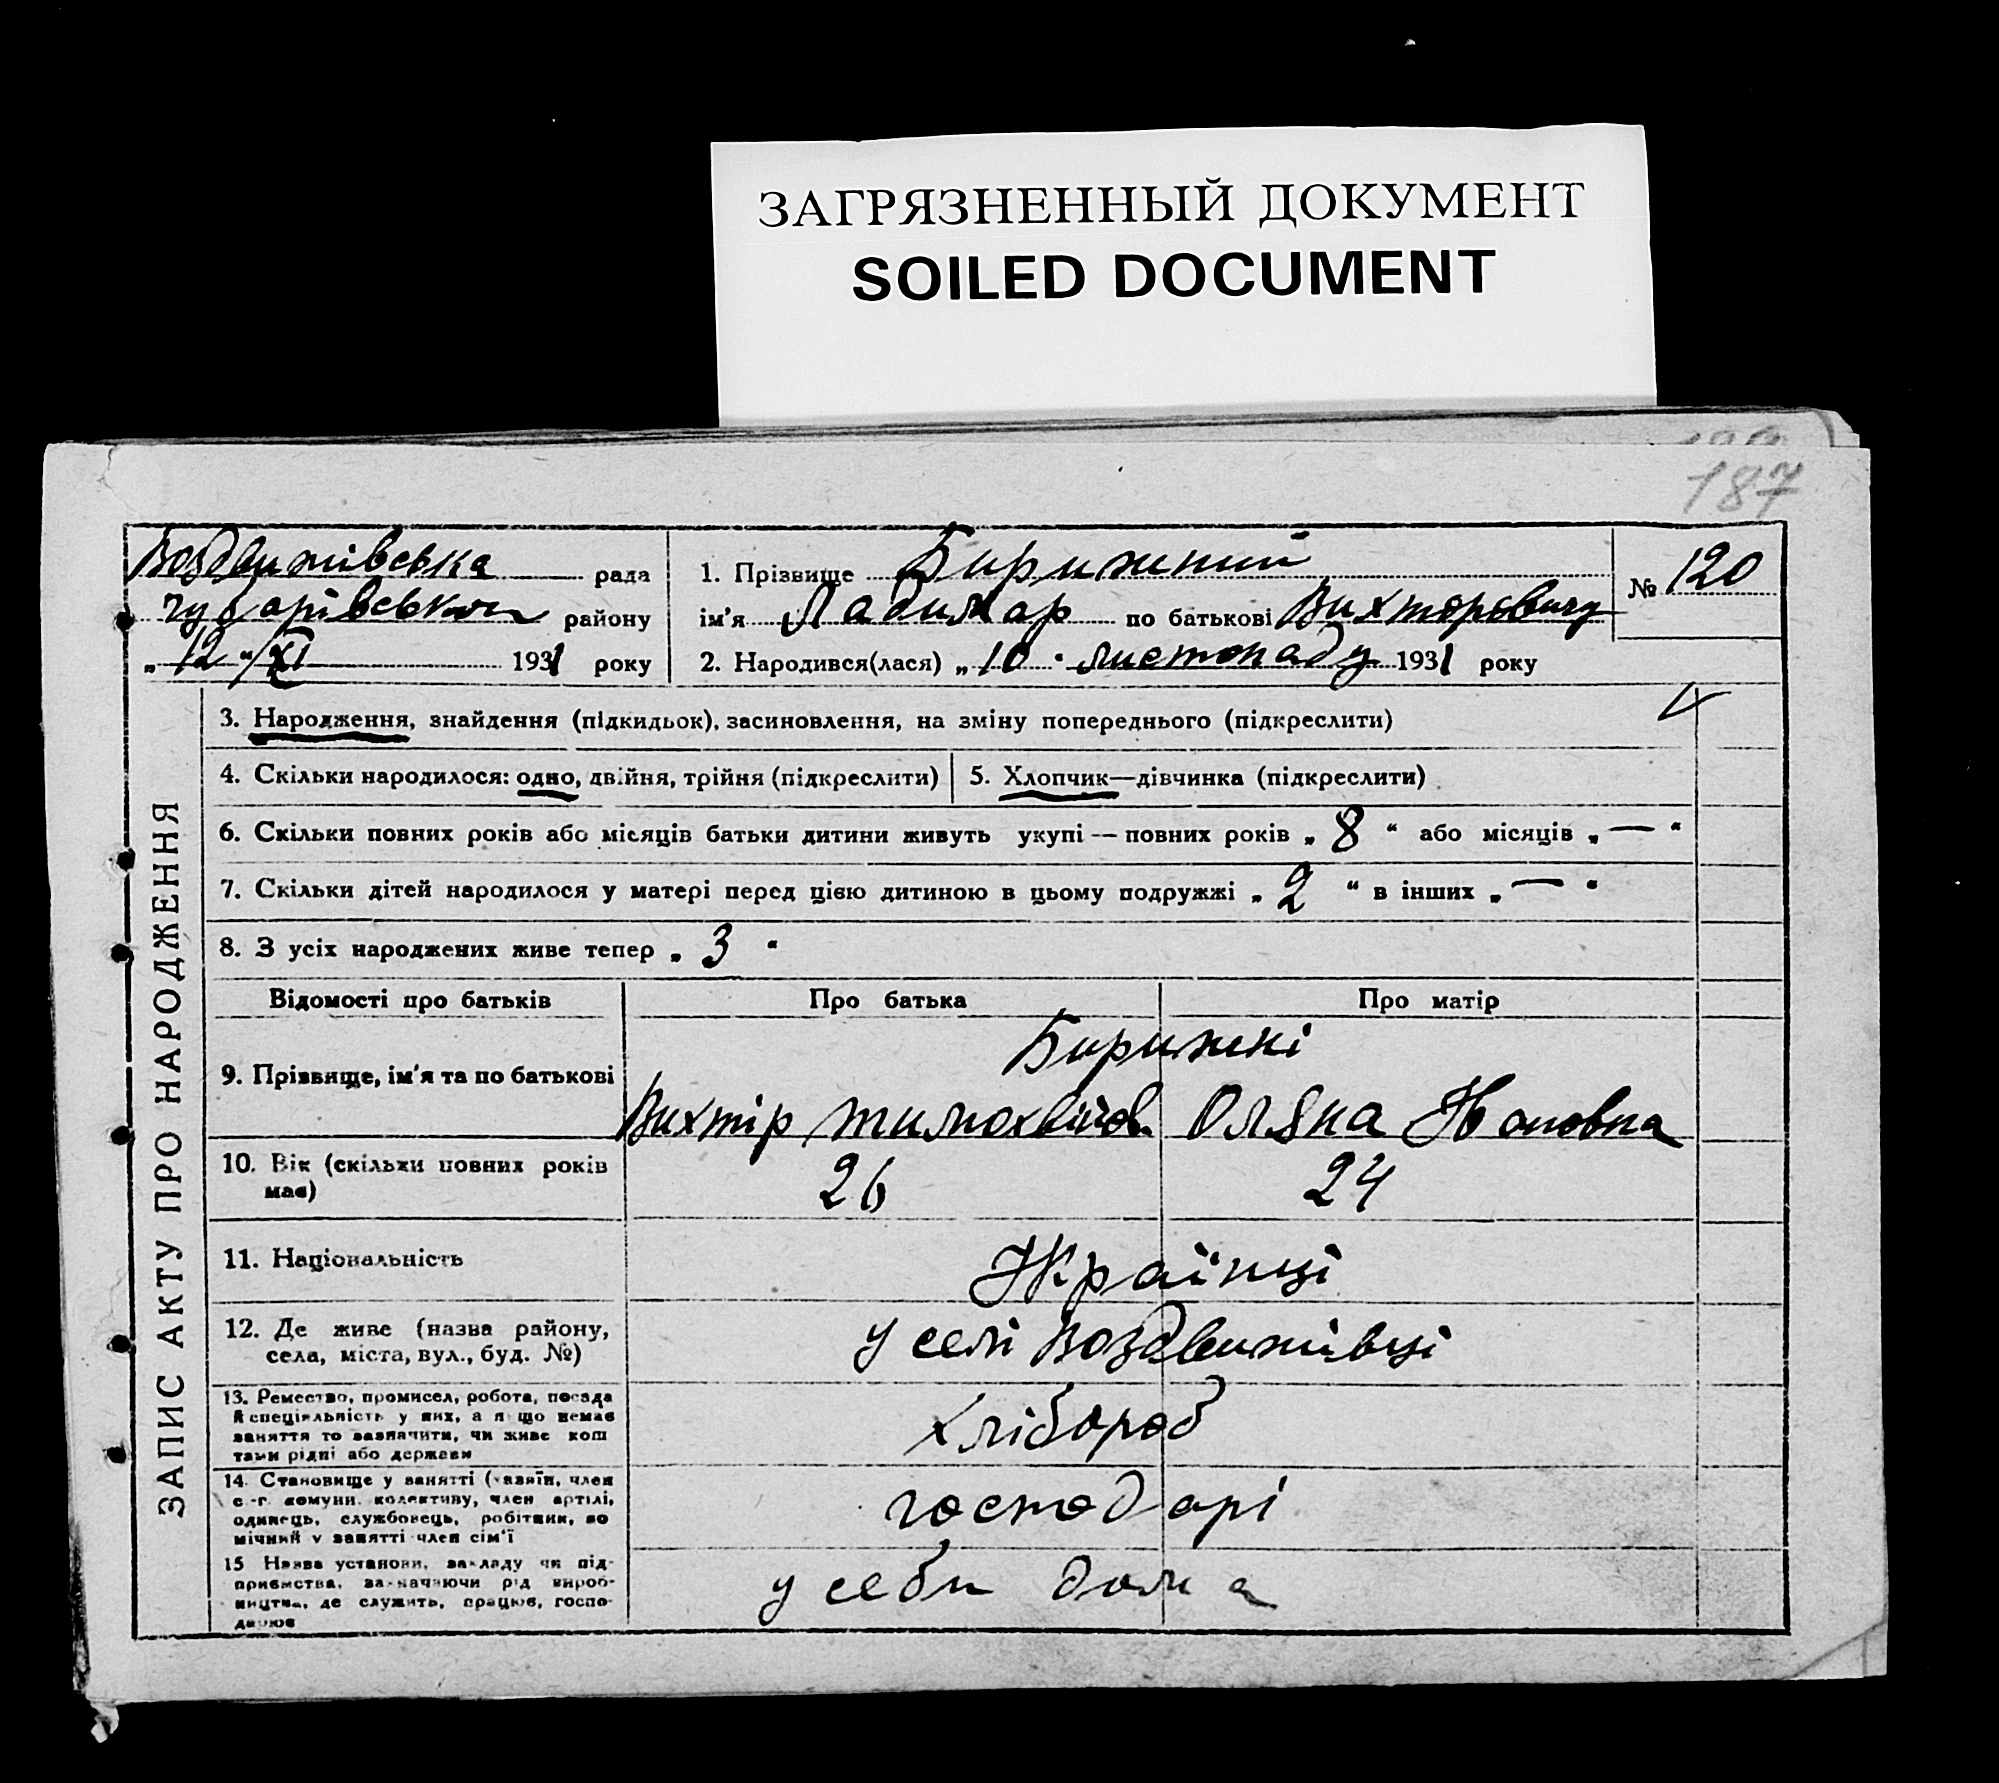 ЗАГРЯЗНЕННЫЙ ДОКУМЕНТ
SOILED DOCUMENT
187
Воздвижівська рада
Чубарівської району
„ 12 “ /XI 1931 року
1. Прізвище Бирижний
ім'я Ладимар по батькові Вихторовичу
2. Народився(лася) „ 10 “ листопаду 1931 року
№ 120
ЗАПИС АКТУ ПРО НАРОДЖЕННЯ
3. Народження, знайдення (підкидьок), засиновлення, на зміну попереднього (підкреслити)
4. Скільки народилося: одно, двійня, трійня (підкреслити)
5. Хлопчик—дівчинка (підкреслити)
6. Скільки повних років або місяців батьки дитини живуть укупі — повних років „ 8 “ або місяців „ — “
7. Скільки дітей народилося у матері перед цією дитиною в цьому подружжі „ 2 “ в інших „ — “
8. З усіх народжених живе тепер „ 3 “
Відомості про батьків Про батька Про матір
Бирижні
9. Прізвище, ім'я та по батькові Вихтір Тимохвійов. Оляна
10. Вік (скільки повних років має) 26 24
11. Національність Українці
12. Де живе (назва району, села, міста, вул., буд. №) у селі Воздвижівці
13. Ремество, промисел, робота, посада
й спеціяльність у них, а якщо немає
заняття то зазначити, чи живе кош
тами рідні або держави
хлібороб
14. Становище у занятті (хазяїн, член
с.-г. комуни, колективу, член артілі,
одинець, службовець, робітник, по
мічний у занятті член сім'ї
господарі
15 Назва установи, закладу чи під-
приємства, зазначаючи рід вироб-
ництва, де служить, працює, госпо-
дарює
у себи дома